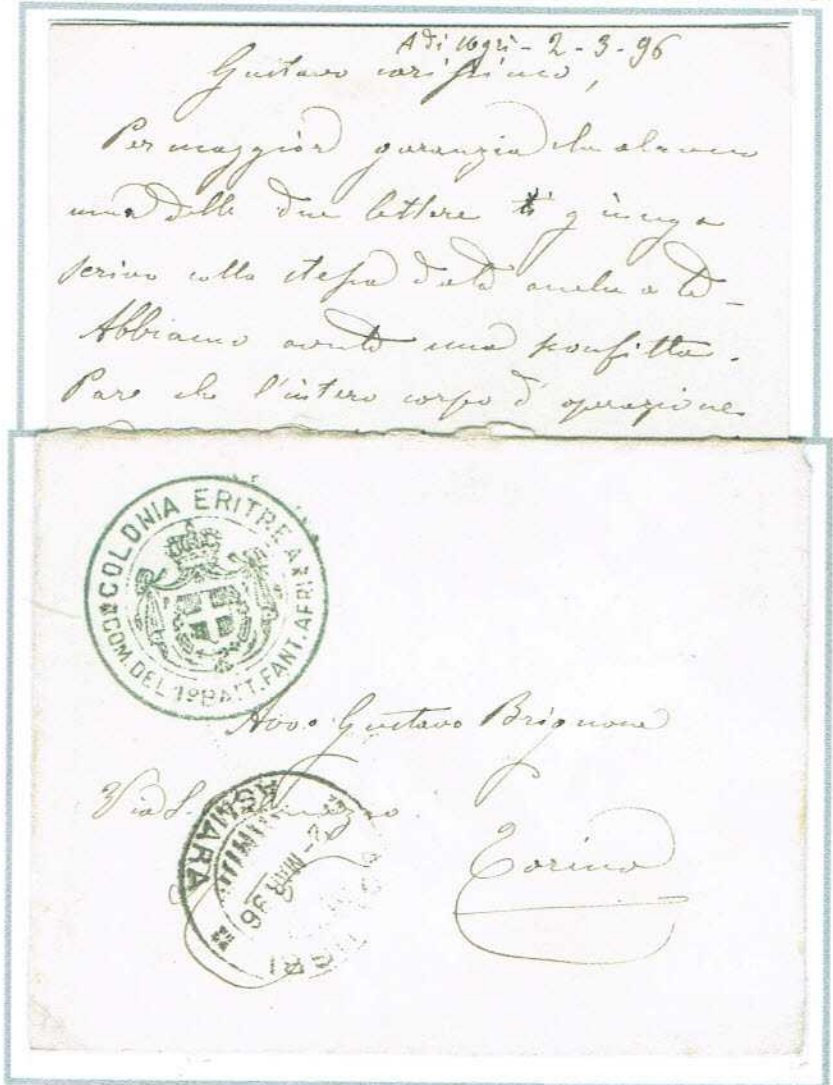 Adi Ugri - 2-3-96
Gustavo carissimo,
Per maggior garanzia che almeno
una delle due lettere ti giunga
scrivo colla stessa data anche a te -
Abbiamo avuto una sconfitta.
Pare che l'intero corpo d'operazione
COLONIA ERITREA
COM. DEL 1º BATT. FANT. AFRI
Avv. Gustavo Brignone
Via S.
Torino
ASMARA
MAR 96